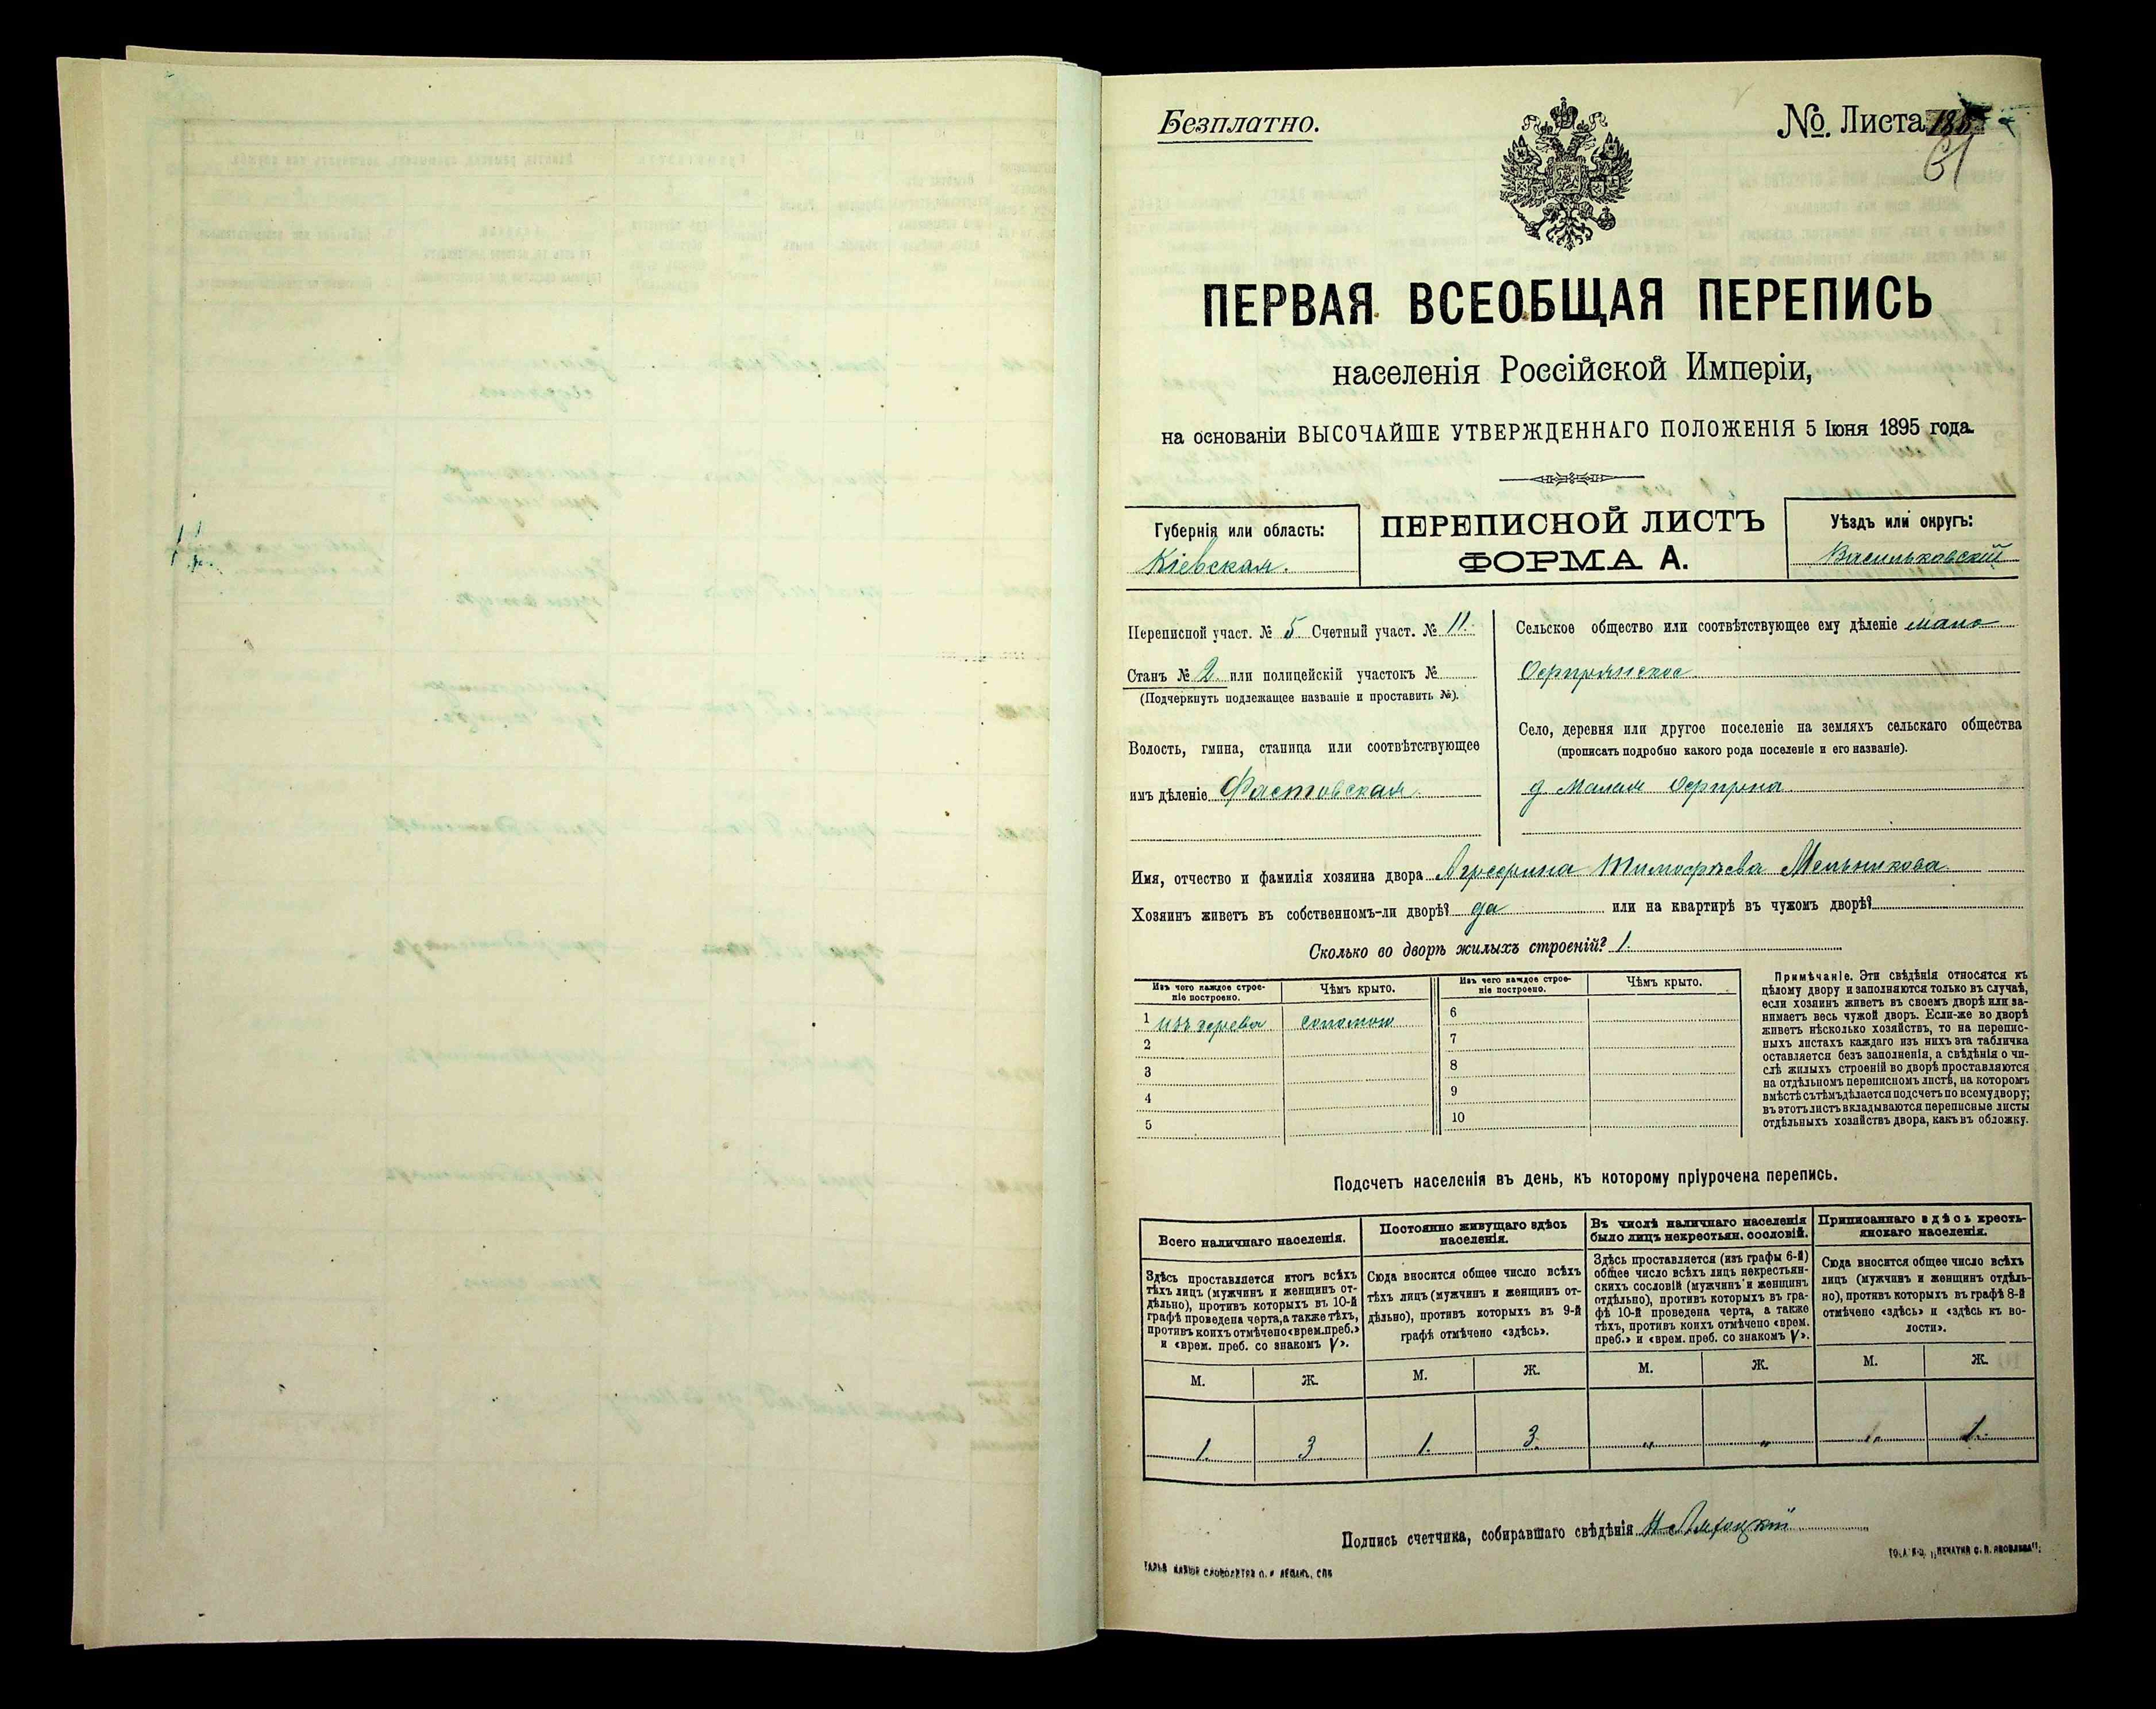 Безплатно.
№ Листа
61
ПЕРВАЯ ВСЕОБЩАЯ ПЕРЕПИСЬ
населенія Россійской Имперіи,
на основаніи ВЫСОЧАЙШЕ УТВЕРЖДЕННАГО ПОЛОЖЕНІЯ 5 Іюня 1895 года.
Губернія или область:
Кіевская.
ПЕРЕПИСНОЙ ЛИСТЪ
ФОРМА А.
Уѣздъ или округъ:
Васильковскій
Переписной участ. № 5 Счетный участ. № 11.
Станъ № 2. или полицейскій участокъ №
(Подчеркнуть подлежащее названіе и проставить №).
Волость, гмина, станица или соотвѣтствующее
имъ дѣленіе Фастовская.
Сельское общество или соотвѣтствующее ему дѣленіе мало
Село, деревня или другое поселеніе на земляхъ сельскаго общества
(прописать подробно какого рода поселеніе и его названіе).
д. Малая
Имя, отчество и фамилія хозяина двора Агрефина Тимофѣева Мельникова
Хозяинъ живетъ въ собственномъ-ли дворѣ? да или на квартирѣ въ чужомъ дворѣ?
Сколько во дворѣ жилыхъ строеній? 1.
Изъ чего каждое строе-
ніе построено.
Чѣмъ крыто.
1 изъ дерева соломою
2
3
4
5
Изъ чего каждое строе-
ніе построено.
Чѣмъ крыто.
6
7
8
9
10
Примѣчаніе. Эти свѣдѣнія относятся къ
цѣлому двору и заполняются только въ случаѣ,
если хозяинъ живетъ въ своемъ дворѣ или за-
нимаетъ весь чужой дворъ. Если-же во дворѣ
живетъ нѣсколько хозяйствъ, то на перепис-
ныхъ листахъ каждаго изъ нихъ эта табличка
оставляется безъ заполненія, а свѣдѣнія о чи-
слѣ жилыхъ строеній во дворѣ проставляются
на отдѣльномъ переписномъ листѣ, на которомъ
вмѣстѣ съ тѣмъ дѣлается подсчетъ по всему двору;
въ этотъ листъ вкладываются переписные листы
отдѣльныхъ хозяйствъ двора, какъ въ обложку.
Подсчетъ населенія въ день, къ которому пріурочена перепись.
Всего наличнаго населенія.
Здѣсь проставляется итогъ всѣхъ
тѣхъ лицъ (мужчинъ и женщинъ от-
дѣльно), противъ которыхъ въ 10-й
графѣ проведена черта, а также тѣхъ,
противъ коихъ отмѣчено «врем. преб.»
и «врем. преб. со знакомъ V».
М. Ж.
1. 3
Постоянно живущаго здѣсь
населенія.
Сюда вносится общее число всѣхъ
тѣхъ лицъ (мужчинъ и женщинъ от-
дѣльно), противъ которыхъ въ 9-й
графѣ отмѣчено «здѣсь».
М. Ж.
1. 3.
Въ числѣ наличнаго населенія
было лицъ некрестьян. сословій.
Здѣсь проставляется (изъ графы 6-й)
общее число всѣхъ лицъ некрестьян-
скихъ сословій (мужчинъ и женщинъ
отдѣльно), противъ которыхъ въ гра-
фѣ 10-й проведена черта, а также
тѣхъ, противъ коихъ отмѣчено «врем.
преб.» и «врем. преб. со знакомъ V».
М. Ж.
" "
Приписаннаго здѣсь кресть-
янскаго населенія.
Сюда вносится общее число всѣхъ
лицъ (мужчинъ и женщинъ отдѣль-
но), противъ которыхъ въ графѣ 8-й
отмѣчено «здѣсь» и «здѣсь къ во-
лости».
М. Ж.
1. 1.
Подпись счетчика, собиравшаго свѣдѣнія